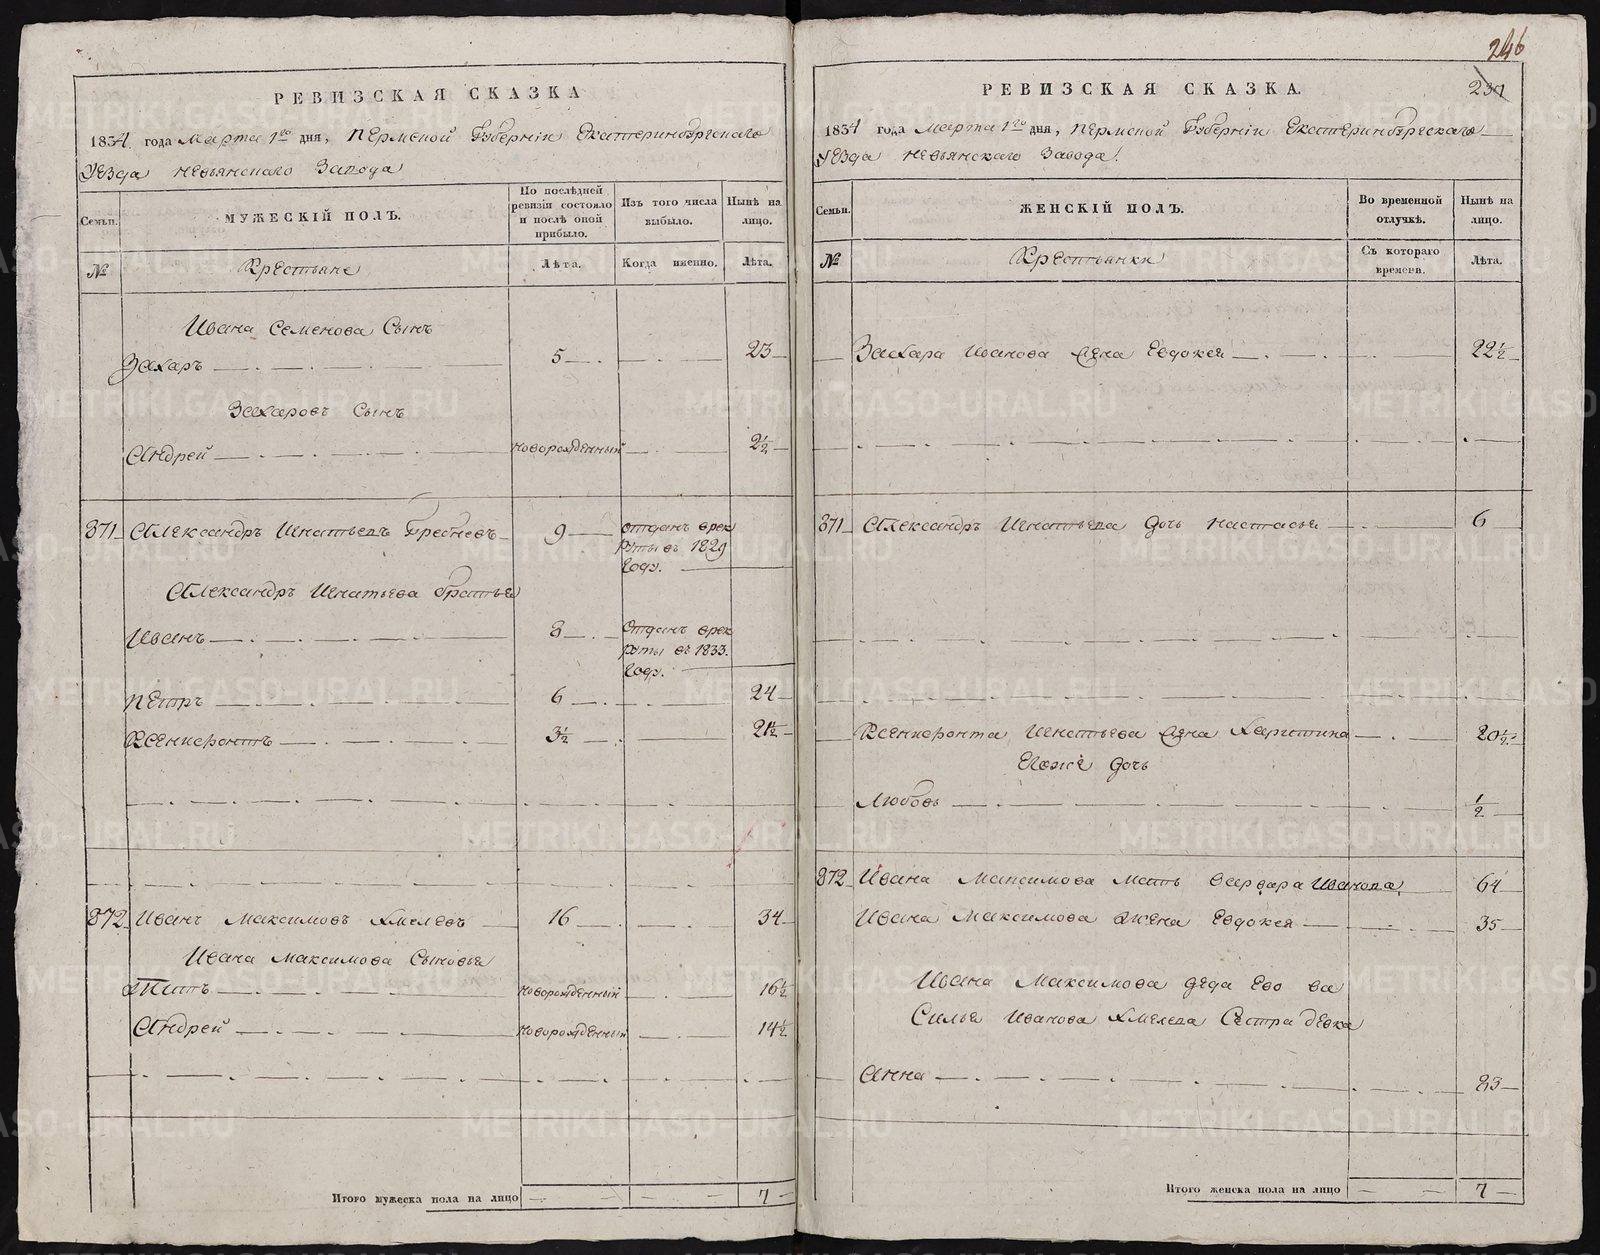 246
РЕВИЗСКАЯ СКАЗКА
1834 года Марта 1го дня, Пермской Губерніи Екатеринбургскаго
Уезда Невьянскаго Завода
Семьи.
МУЖЕСКІЙ ПОЛЪ.
По послѣдней ревизіи состояло и послѣ оной прибыло.
Изъ того числа выбыло.
Нынѣ на лицо.
№
Крестьяне
Лѣта.
Когда именно.
Лѣта.
Ивана Семенова Сынъ
Захаръ 5 23
Захаровъ Сынъ
Андрей новорожденный 2½
371 Александръ Игнатьевъ Гребневъ 9 отданъ врек
руты въ 1829
году.
Александръ Игнатьева Братья
Иванъ 8 Отданъ врек
руты въ 1833.
году.
Петръ 6 24
Ксенифонтъ 3½ 21½
372 Иванъ Максимовъ Хмелевъ 16 34
Ивана Максимова Сыновья
Титъ новорожденный 16½
Андрей новорожденный 14½
Итого мужеска пола на лицо 7
РЕВИЗСКАЯ СКАЗКА.
237
1834 года Марта 1го дня, Пермской Губерніи Екатеринбургскаго
Уезда Невьянскаго Завода.
Семьи.
ЖЕНСКІЙ ПОЛЪ.
Во временной отлучкѣ.
Нынѣ на лицо.
№
Крестьянки
Съ котораго времени.
Лѣта.
Захара Иванова жена Евдокея 22½
371 Александръ Игнатьева дочь Настасья 6
Ксенифонта Игнатьева жена Харитина 20½
Ея же дочь
Любовь ½
372 Ивана Максимова Мать Варвара Иванова 64
Ивана Максимова жена Евдокея 35
Ивана Максимова деда Ево
Силы Иванова Хмелева Сестра девка
Анна 23
Итого женска пола на лицо 7
METRIKI.GASO-URAL.RU